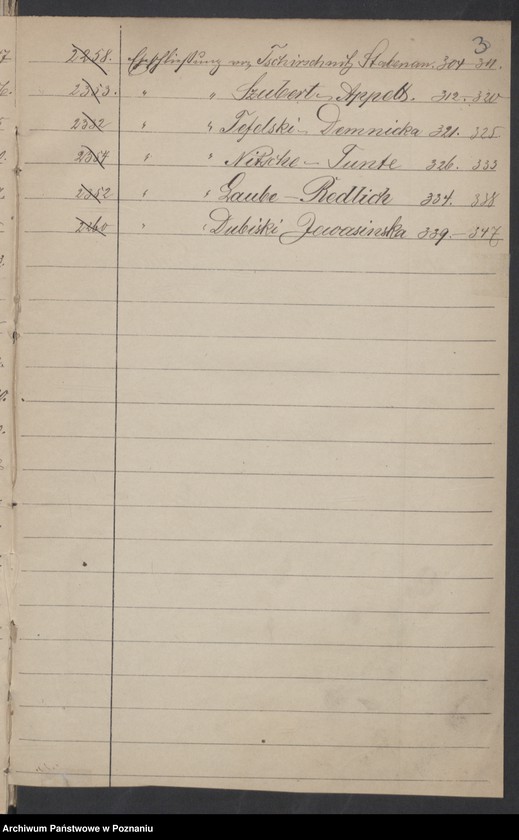 3
2258. Eheschließung von Tschirschnitz Stabenau. 304 311.
2353. " " Szubert – Appelt. 312. 320
2332 " " Tefelski – Domnicka 321. 325
2354 " " Nitsche – Tunte 326. 333
2352 " " Laube – Redlich 334. 338
2160 " " Dubiski Jewasinska 339. – 347
Archiwum Państwowe w Poznaniu